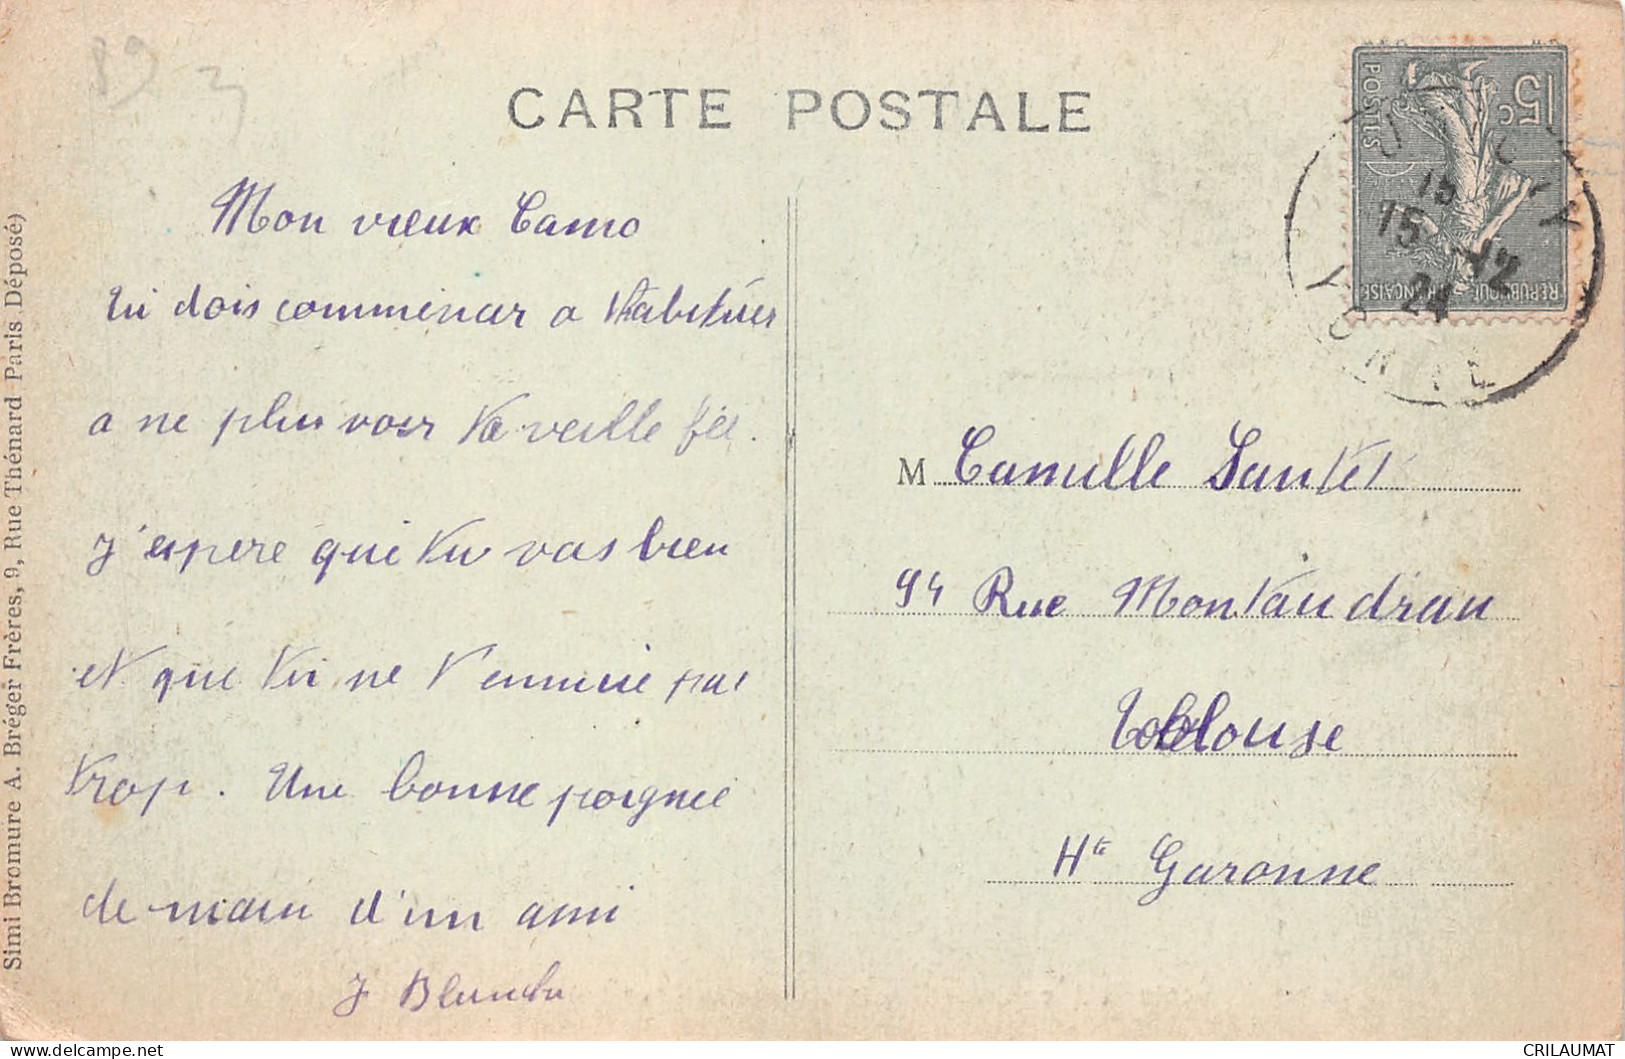 89 3
CARTE POSTALE
15c
POSTES
REPUBLIQUE FRANÇAISE
15
15 -12
24
Mon vieux Camo
tu dois commencer a t'habituer
a ne plus voir ta veille fée.
J'espere que tu vas bien
et que tu ne t'ennuie pas
trop. Une bonne poignee
de main d'un ami
J
M Camille Santet
94 Rue Montaudran
Toulouse
Hte Garonne
Simi Bromure A. Bréger Frères, 9, Rue Thénard Paris Déposé)
CRILAUMAT